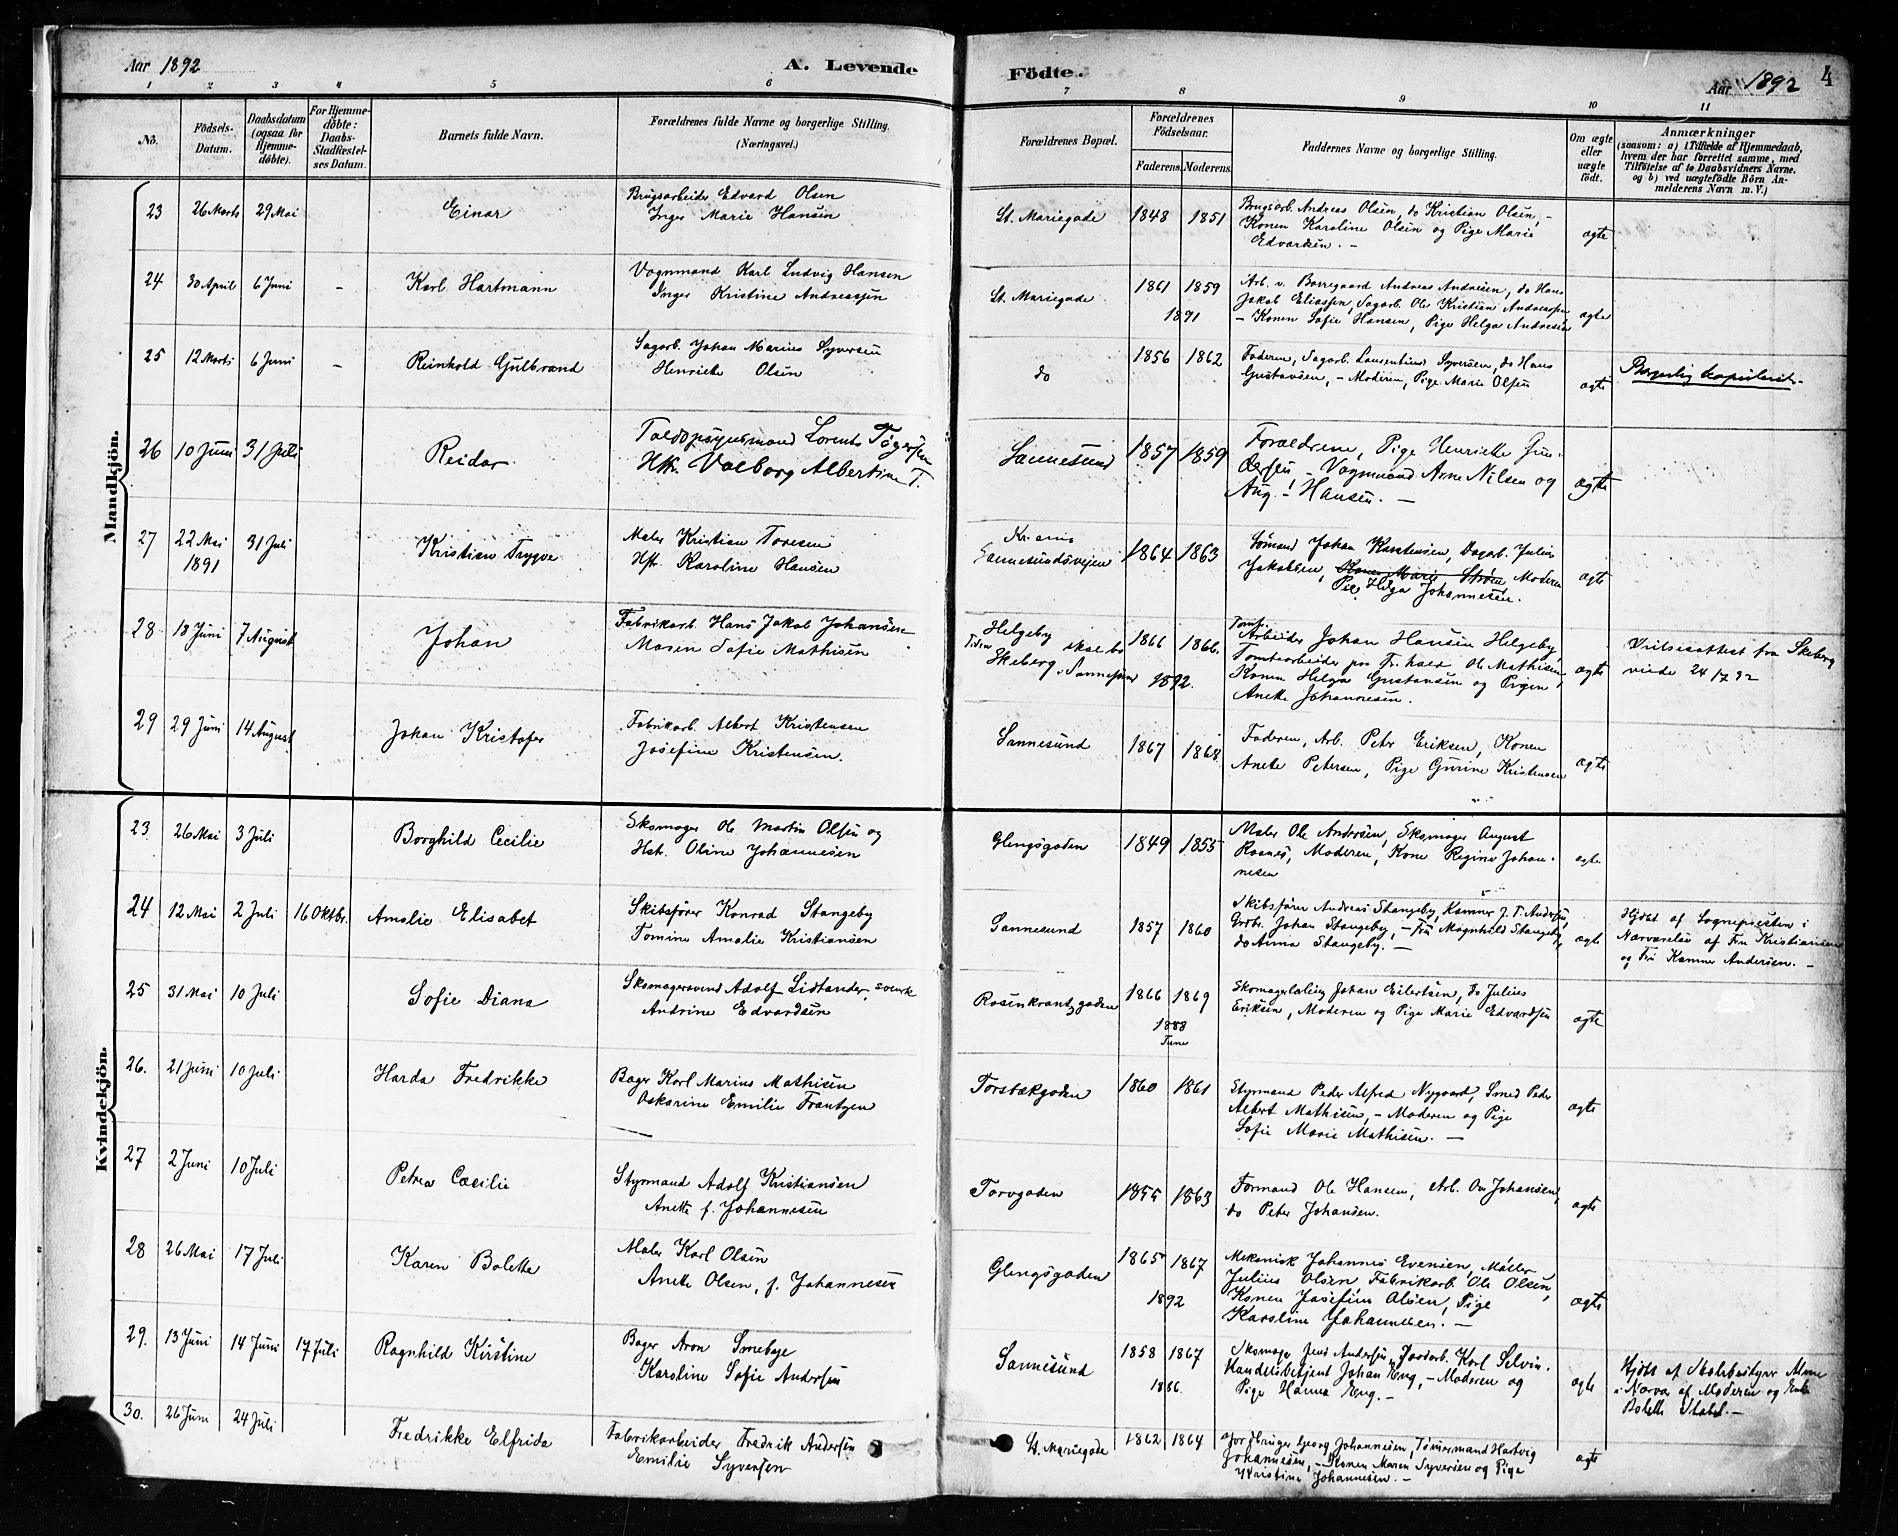 Aar 1892
A. Levende
Födte.
Aar 1892
4
1 2 3 4 5 6 7 8 9 10 11
No.
Födsels-Datum.
Daabsdatum (ogsaa for Hjemmedöbte).
For Hjemmedöbte: Daabs-Stadfæstelses Datum.
Barnets fulde Navn.
Forældrenes fulde Navne og borgerlige Stilling.
(Næringsvei.)
Forældrenes Bopæl.
Forældrenes Födselsaar.
Faderens. Moderens.
Faddernes Navne og borgerlige Stilling.
Om ægte eller uægte födt.
Anmærkninger
(saasom: a) i Tilfælde af Hjemmedaab, hvem der har forrettet samme, med Tilföielse af to Daabsvidners Navne, og b) ved uægtefödte Börn Anmelderens Navn m. V.)
Mandkjön.
23 26 Marts 29 Mai Einar
Brugsarbeider Edvard Olsen
Inger Marie Hansen
St. Mariegade 1848 1851
Brugsarb. Andreas Olsen, do Kristian Olsen, -
Konen Karoline Olsen og Pige Marie
Edvardsen. -
ægte
24 30 April 6 Juni - Karl Hartmann
Vognmand Karl Ludvig Hansen
Inger Kristine Andreassen
St. Mariegade 1861 1859
1891
Arb. v. Borregaard Andreas Andresen, do Hans
Jakob Eliassen, Sagarb. Ole Kristian Andreassen
- Konen Sofie Hansen, Pige Helga Andresen
ægte
25 12 Marts 6 Juni - Reinhold Gulbrand
Sagarb. Johan Marius Syversen
Henriette Olsen
do 1856 1862
Faderen, Sagarb. Laurentius Syversen, do Hans
Gustavsen, - Moderen, Pige Marie Olsen
ægte
Borgerlig
26 10 Juni 31 Juli Reidar
Toldopsynsmand Lorents Tøgersen
Hst. Valborg Albertine T.
Sannesund 1857 1859
Forældrene, Pige Henriette Gun-
dersen - Vognmand Arne Nilsen og
Aug. - Hansen. -
ægte
27 22 Mai 1891 31 Juli Kristian Trygve
Maler Kristian Toresen
Hst. Karoline Hansen
Kr.ania
Sannesundsveien 1864 1863
Sømand Johan Karstensen, Dagarb. Julius
Jakobsen, Konen Marie Strøm, Moderen
Pige Helga Johannesen.
ægte
28 18 Juni 7 August Johan
Fabrikarb. Hans Jakob Johansen
Maren Sofie Mathisen
Helgeby skal bo
Skeberg Sannesund 1866 1866.
1892.
Tomt
Arbeider Johan Hansen Helgeby
Tomtearbeider Ole Mathisen,
Konen Helga Gustavsen og Pigen
Anette Johannesen.
ægte
Vielsesattest fra Skeberg
viede 24/7 92
29 29 Juni 14 August Johan Kristofer
Fabrikarb. Albert Kristensen
Josefine Kristensen.
Sannesund 1867 1868
Faderen, Arb. Peter Eriksen, Konen
Anette Petersen, Pige Gurine Kristensen
ægte
Kvindekjön.
23 26 Mai 3 Juli Borghild Cecilie
Skomager Ole Martin Olsen og
Hst. Oline Johannesen
Glengsgaden 1849 1855
Maler Ole Andersen, Skomager August
Rosnes, Moderen, Kone Regine Johan-
nesen
ægte
24 12 Mai 2 Juli 16 Oktbr. Amalie Elisabet
Skibsfører Konrad Stangeby
Tomine Amalie Kristiansen
Sannesund 1857 1860
Skibsfører Andreas Stangeby, Kæmner J. T. Andersen,
Grdbr. Johan Stangeby, - Fru Magnhild Stangeby,
do Anna Stangeby. -
ægte
Hjdøbt af Sognepresten i
Nærværelse af Fru Kristiansen
og Fru Kæmner Andersen. -
25 31 Mai 10 Juli Sofie Diana
Skomagersvend Adolf Lidlander, svensk
Andrine Edvardsen
Rosenkrantzgaden 1866 1869
1888
Tune
Skomagerlærling Johan Eilertsen, do Julius
Eriksen, Moderen og Pige Marie Edvardsen
ægte
26. 21 Juni 10 Juli Harda Fredrikke
Bager Karl Marius Mathisen
Oskarine Emilie Frantzen
Torsbækgaden 1860 1861
Styrmand Peder Alfred Nygaard, Smed Peder
Albert Mathisen, - Moderen og Pige
Sofie Marie Mathisen. -
ægte
27 2 Juni 10 Juli Petrea Cæcilie
Styrmand Adolf Kristiansen
Anette f. Johannesen
Torvgaden 1855 1863
Formand Ole Hansen, Arb. Ole Johansen,
do Peter Johansen.
ægte
28 26 Mai 17 Juli Karen Bolette
Maler Karl Olsen
Anette Olsen, f. Johannesen
Glengsgaden 1865 1867
1892
Mekanisk Johannes Evensen, Møller
Julius Olsen Fabrikarb. Ole Olsen,
Konen Josefine Olsen, Pige
Karoline Johannesen. -
ægte
29. 13 Juni 14 Juni 17 Juli Ragnhild Kirstine
Bager Aron Smebye
Karoline Sofie Andersen
Sannesund 1858 1867
1886.
Skomager Jens Andersen, Jordarb. Karl Selvin.
Handelsbetjent Johan Eng, - Moderen og
Pige Hanna Eng. -
ægte
Hjdøbt af Skolebestyrer
i Nærvær. af Moderen og Enke
Bolette Stabel. -
30. 26 Juni 24 Juli Fredrikke Elfrida
Fabrikarbeider Fredrik Andersen
Emilie Syversen
St. Mariegade 1862 1864
Jordbruger Georg Johannesen, Tømmermand Hartvig
Johannesen, - Konen Maren Syversen og Pige
Kristine Johannesen. -
ægte